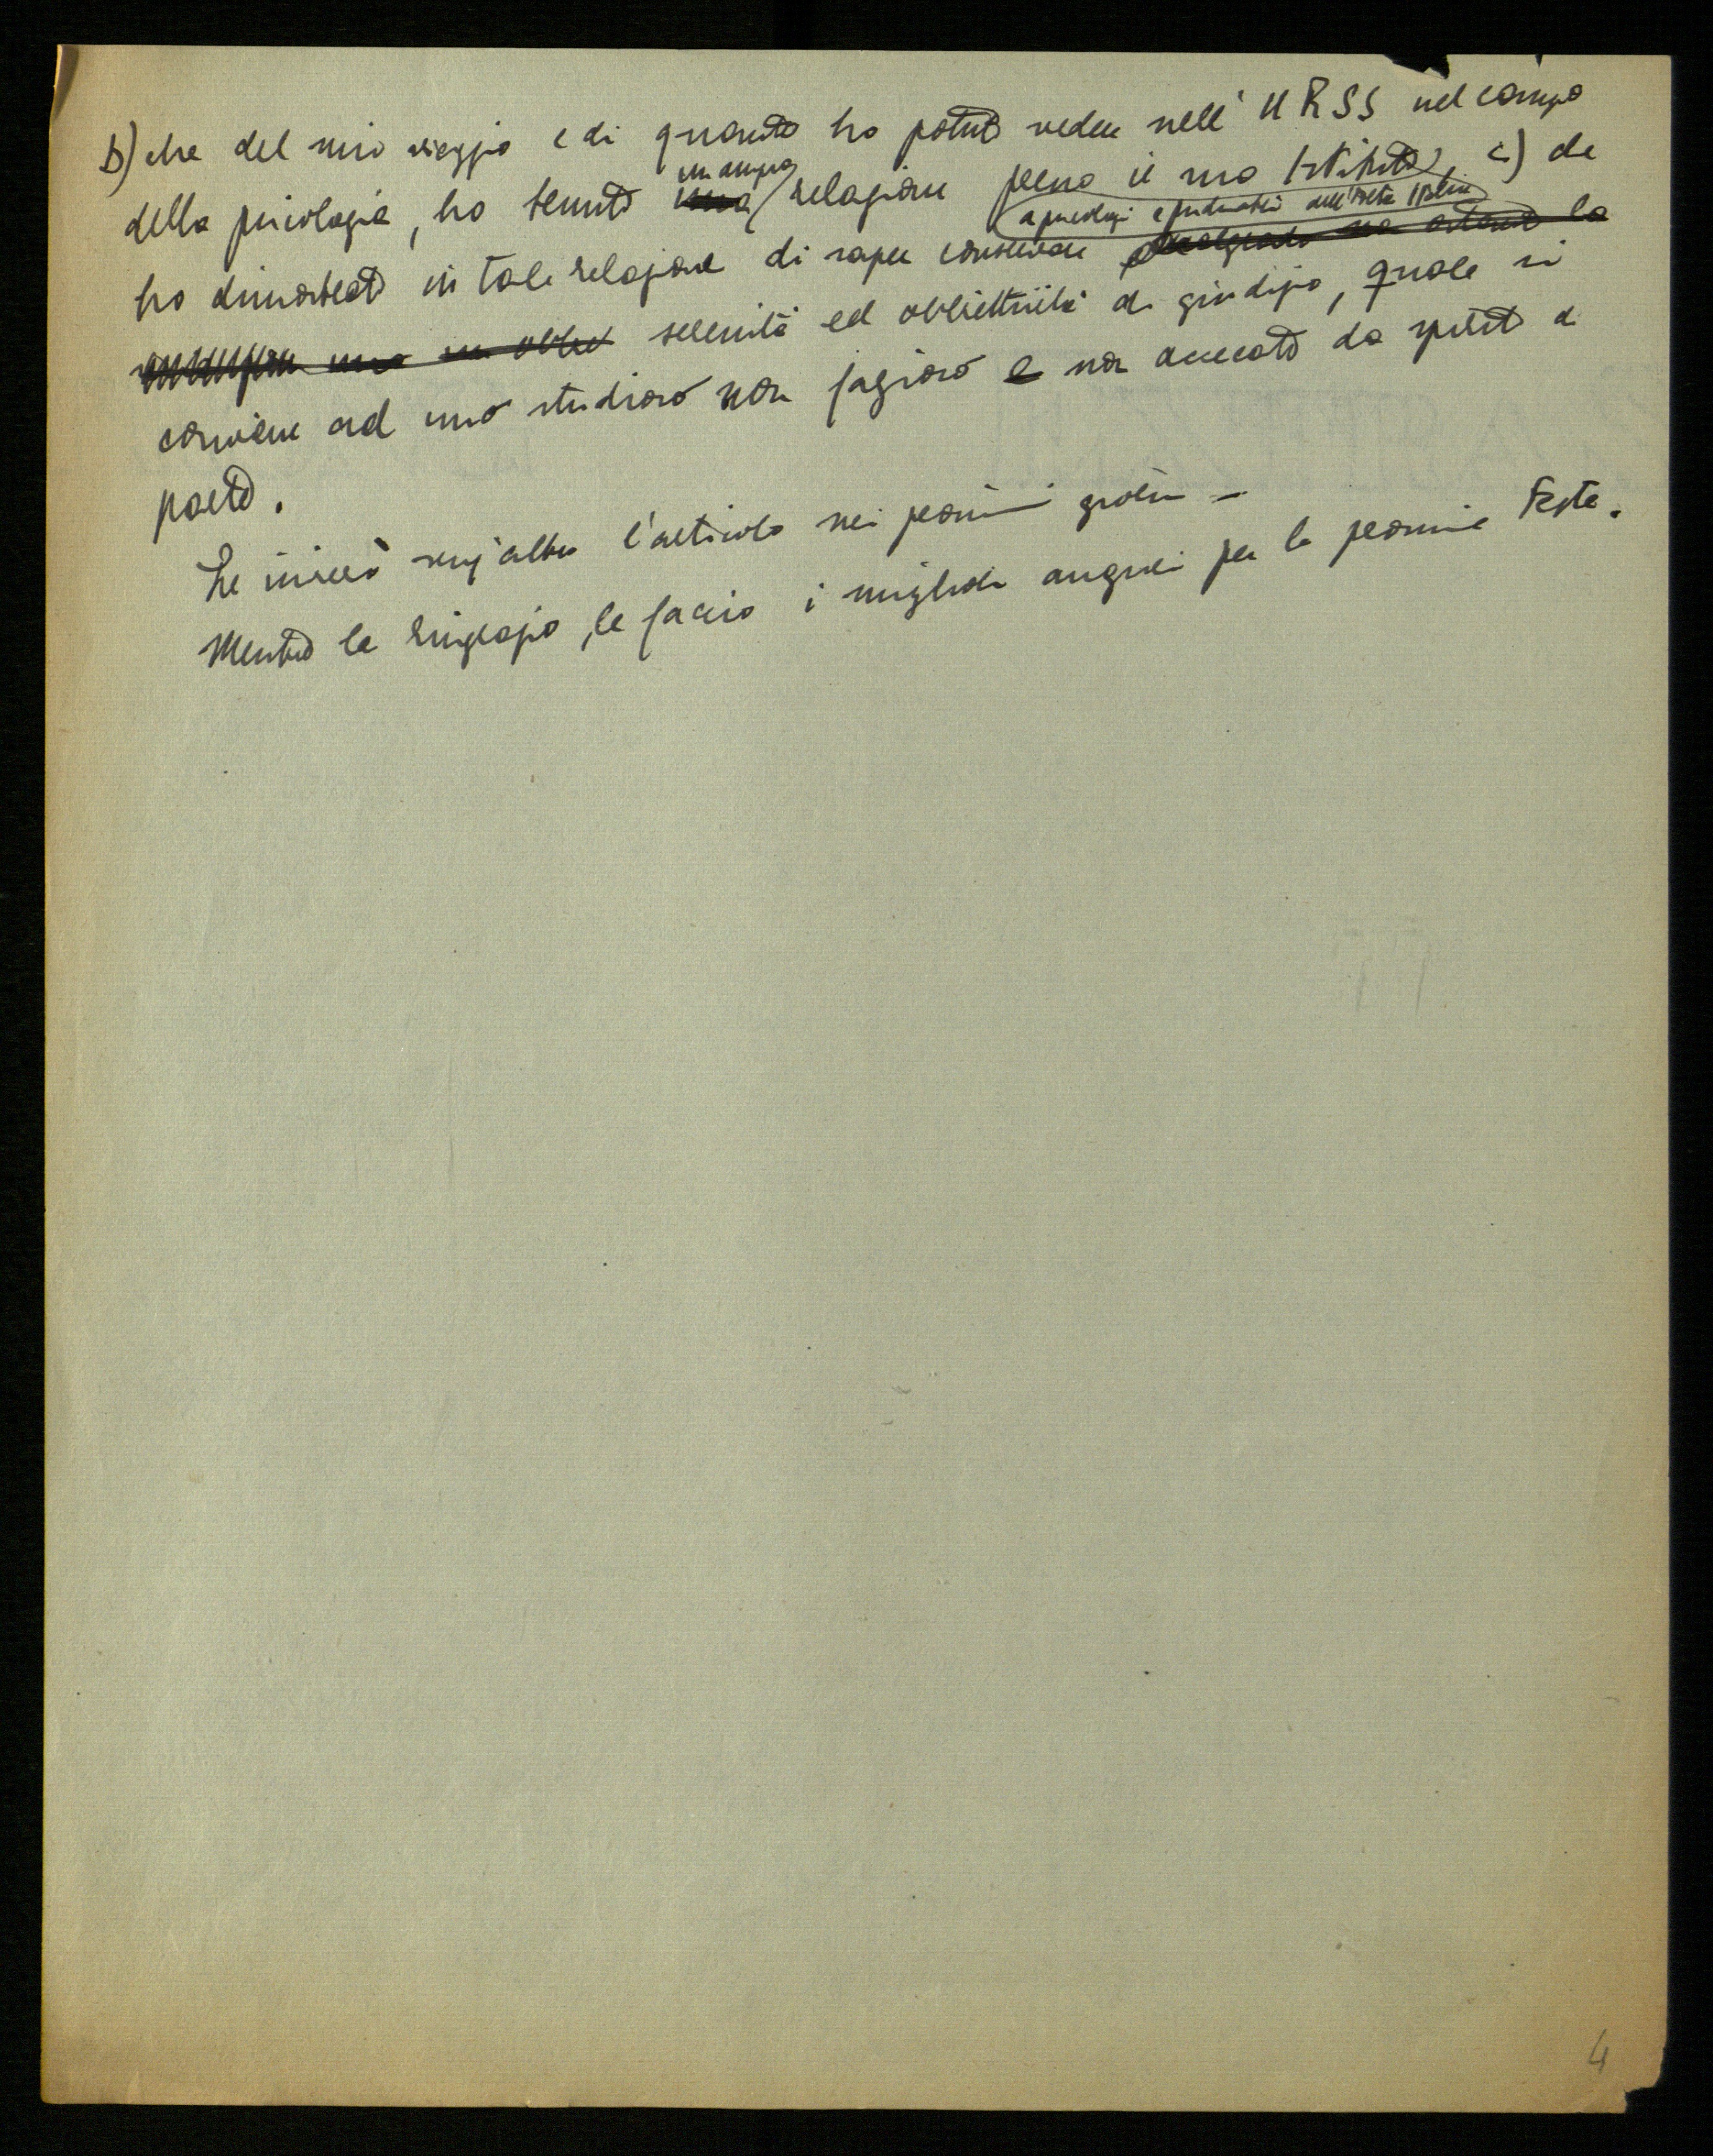 b) che del mio viaggio e di quanto ho potuto vedere nell'URSS nel campo
della psicologia, ho tenuto un'ampia relazione presso il suo Istituto, c) che
a psicologi e psichiatri dell'Alta Italia
ho dimostrato in tale relazione di saper conservare malgrado la
serenità ed obbiettività di giudizio, quale si
conviene ad uno studioso non fazioso e non accecato da spirito di
parte.
Le invierò senz'altro l'articolo nei prossimi giorni –
Mentre la ringrazio, le faccio i migliori auguri per le prossime Feste.
4